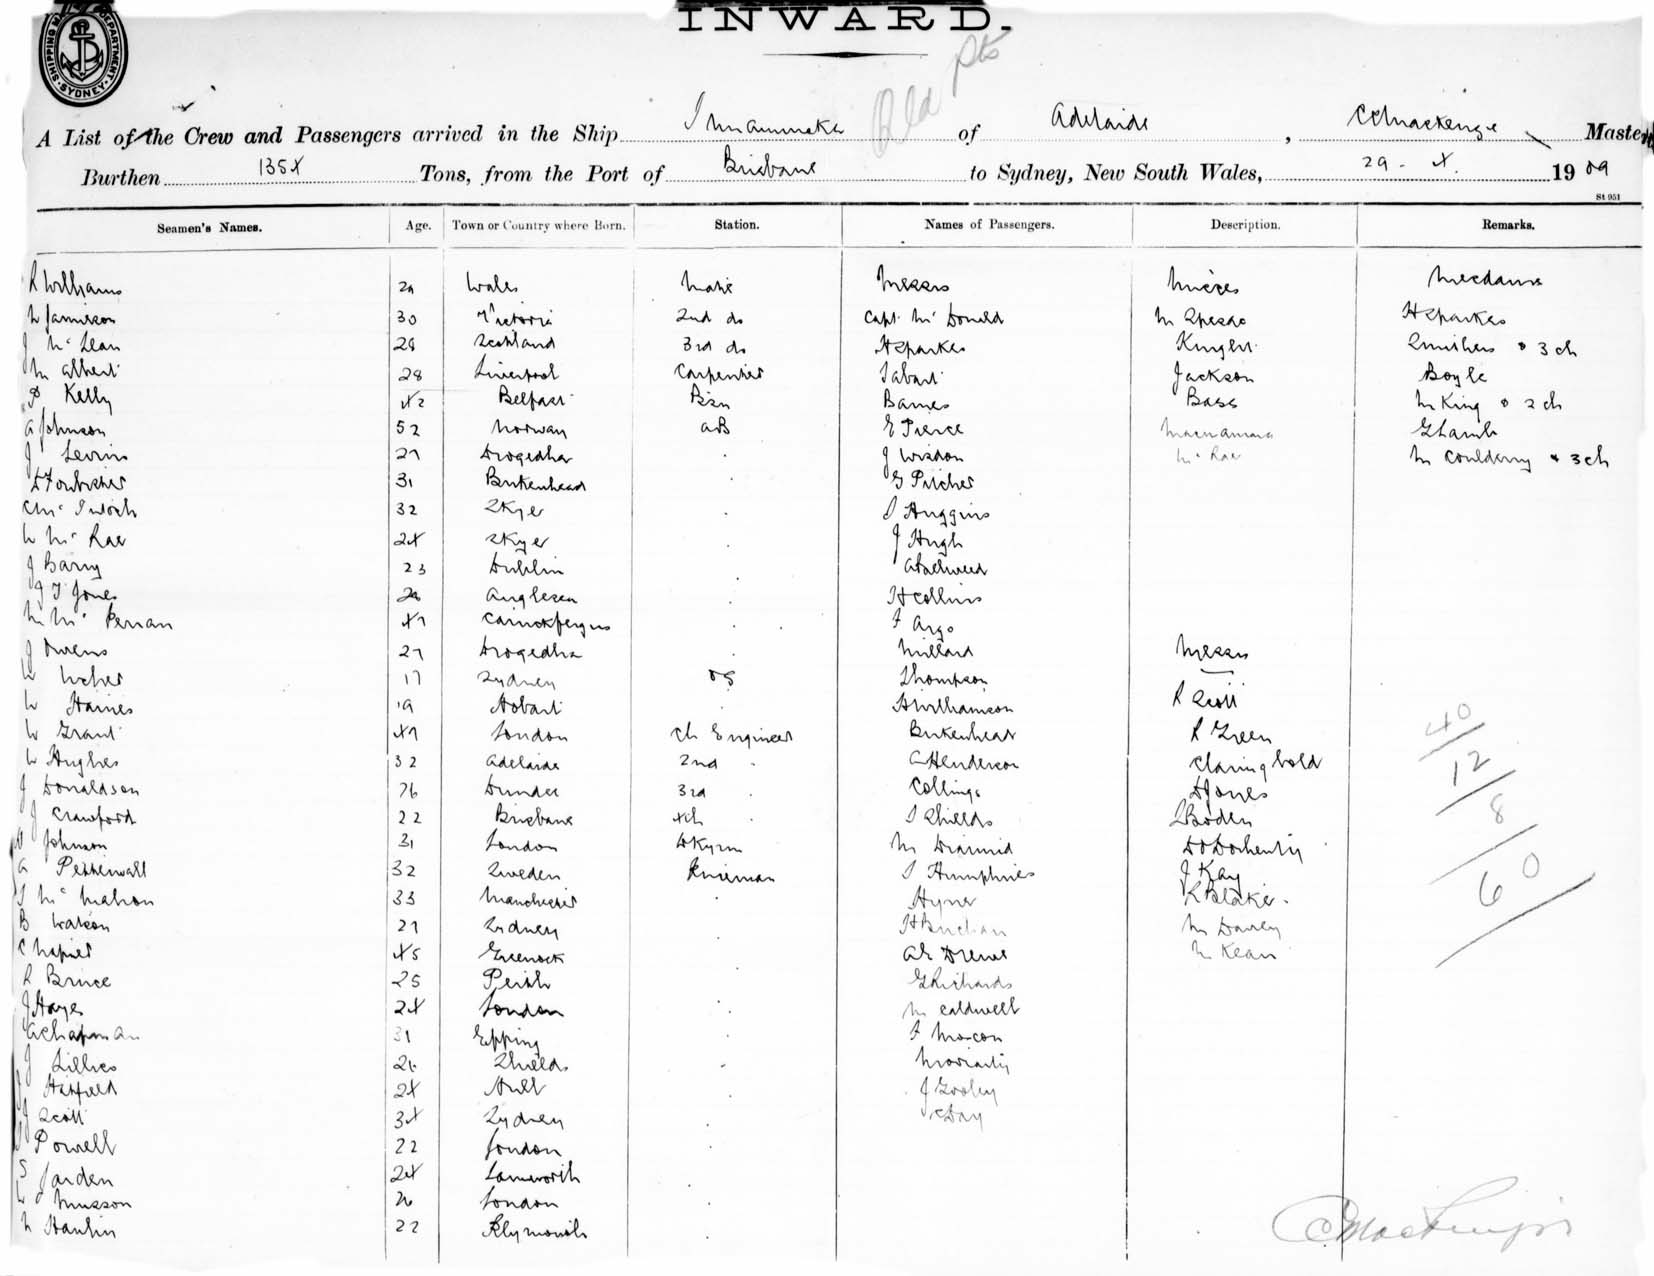 INWARD.
Old Pts
SHIPPING MASTER'S DEPARTMENT. SYDNEY.
A List of the Crew and Passengers arrived in the Ship Innamincka of Adelaide, C C Mackenzie Master
Burthen 1354 Tons, from the Port of Brisbane to Sydney, New South Wales, 29 - 4. 1909
St 951
Seamen's Names. Age. Town or Country where Born. Station. Names of Passengers. Description. Remarks.
R Williams 29 Wales Mate Messrs Misses Mesdames
Jamieson 30 Victoria 2nd do Capt. Mc Donald M Spears H Sparkes
J Mc Lean 28 Scotland 3rd do H Sparkes Knight Smithers & 3 ch
M Albert 28 Liverpool Carpenter Tabart Jackson Boyle
P Kelly 42 Belfast Bsn Barnes Bass M King & 2 ch
A Johnson 52 Norway AB E Pierce Macnamara G Lamb
J Levins 27 Drogedha J Wisdon Mc Rae M Couldery & 3 ch
31 Birkenhead G Pitcher
32 Skye S Huggins
Mc Rae 24 Skye J Hugh
J Barry 23 Dublin
J T Jones Anglesea H Collins
M Mc 47 Carrickfergus F Argo
J Owens 27 Drogedha Millard Messrs
17 Sydney OS Thompson
W Haines 19 Hobart H Williamson R Scott
W Grant 47 London Ch Engineer Birkenhead R Green
W Hughes 32 Adelaide 2nd Henderson Claringbold
J Donaldson 26 Dundee 3rd Collings D Jones
J Crawford 22 Brisbane 4th S Shields S Boden
Johnson 31 London Dkyman M Diarmid D O Doherty
A Pettenwall 32 Sweden Fireman S Humphries J Kay
S Mc Mahon 33 Manchester Hyner R Blake
B Watson 27 Sydney H Buchan M Davey
C Napier 45 Greenock A E Drewe M Kean
R Bruce 25 Perth G Richards
J Hayes 24 London M Caldwell
A Chapman 31 Epping F Moxon
J Lillies Shields Moriarty
Hatfield 24 Hull J Gooley
J Scott 34 Sydney C Day
Powell 22 London
S Jarden 24 Tamworth
W Musson London
Hanlin 22 Plymouth
40
12
8
60
C C Mackenzie